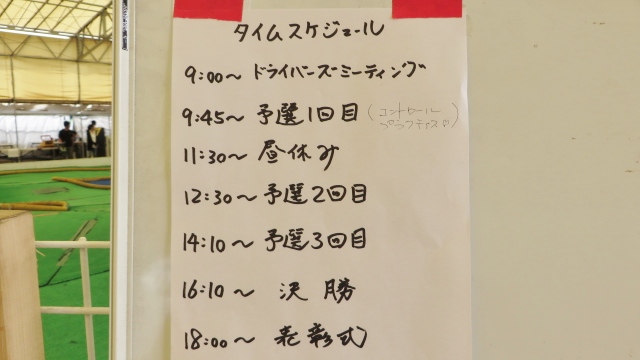 タイムスケジュール
9:00～ ドライバーズミーティング
9:45～ 予選1回目 (コントロールプラクティス)
11:30～ 昼休み
12:30～予選2回目
14:10～予選3回目
16:10～ 決勝
18:00～ 表彰式